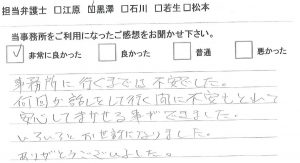 担当弁護士 □江原 ☑黒澤 □石川 □若生 □松本
当事務所をご利用になったご感想をお聞かせ下さい。
☑ 非常に良かった □ 良かった □ 普通 □ 悪かった
事務所に行くまでは不安でした。
何回か話しをして行く内に不安もとれて
安心してまかせる事ができました。
いろいろとお世話になりました。
ありがとうございました。